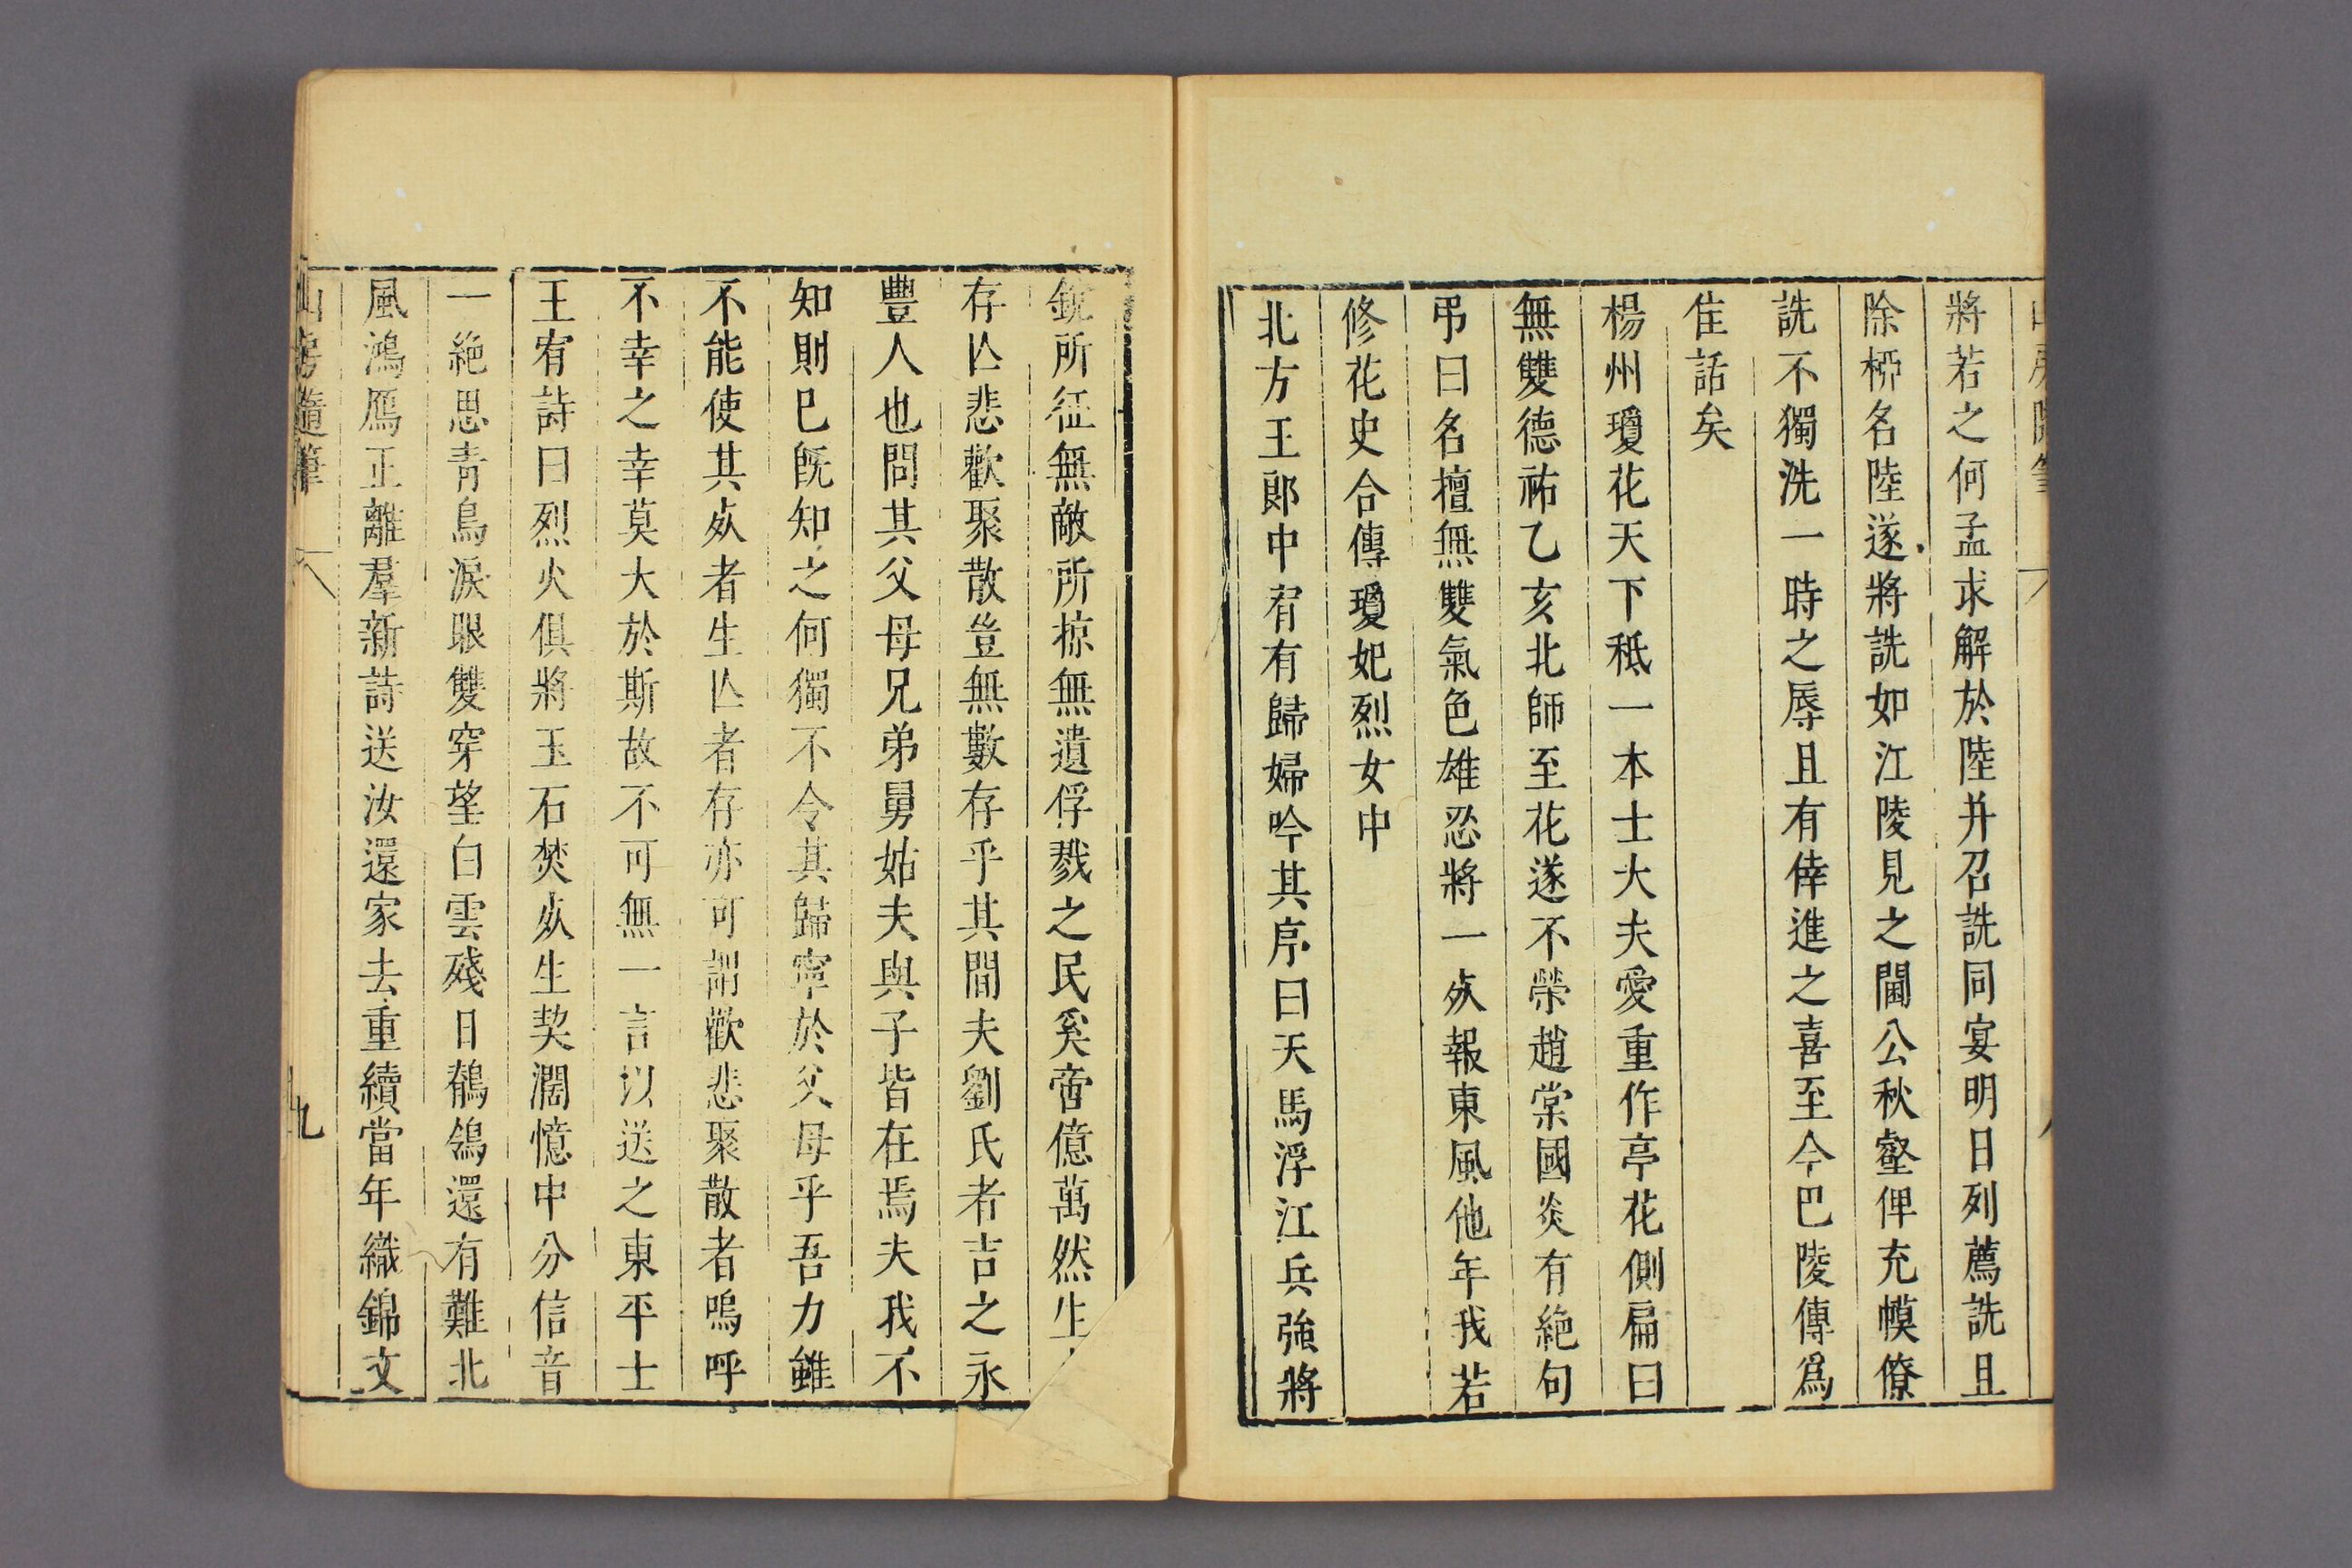 將若之何孟求解於陸并召詵同宴明日列薦詵且
除桺名陸遂將詵如江陵見之閫公秋壑俾充幙僚
詵不獨洗一時之辱且有倖進之喜至今巴陵傳爲
佳話矣
楊州瓊花天下秪一本士大夫愛重作亭花側扁曰
無雙德祐乙亥北師至花遂不榮趙棠國炎有絶句
弔曰名擅無雙氣色雄忍將一㱙報東風他年我若
修花史合傳瓊妃烈女中
北方王郎中宥有歸婦吟其序曰天馬浮江兵強將
銳所征無敵所掠無遺俘戮之民奚啻億萬然生
存亾悲歡聚散豈無數存乎其間夫劉氏者吉之永
豐人也問其父母兄弟舅姑夫與子皆在焉夫我不
知則巳旣知之何獨不令其歸寧於父母乎吾力雖
不能使其㱙者生亾者存亦可謂歡悲聚散者嗚呼
不幸之幸莫大於斯故不可無一言以送之東平士
王宥詩曰烈火俱將玉石焚㱙生契濶憶中分信音
一絶思青鳥淚眼雙穿望白雲殘日鶺鴒還有難北
風鴻鴈正離羣新詩送汝還家去重續當年織錦文
山房隨筆
九